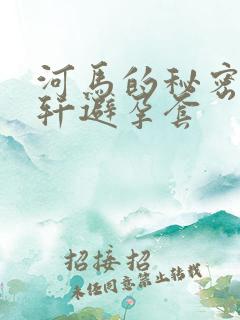 河马的秘密
轩避孕套
招接招
未经同意禁止转载